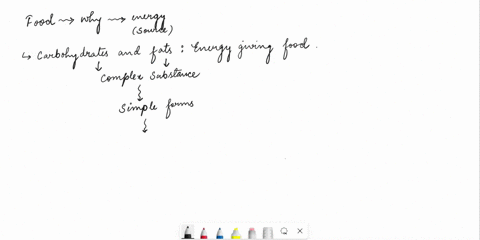 Food → why → energy
(source)
↳ Carbohydrates and fats : Energy giving food.
Complex substance
Simple forms